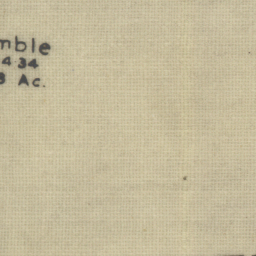 mble
434
8 Ac.